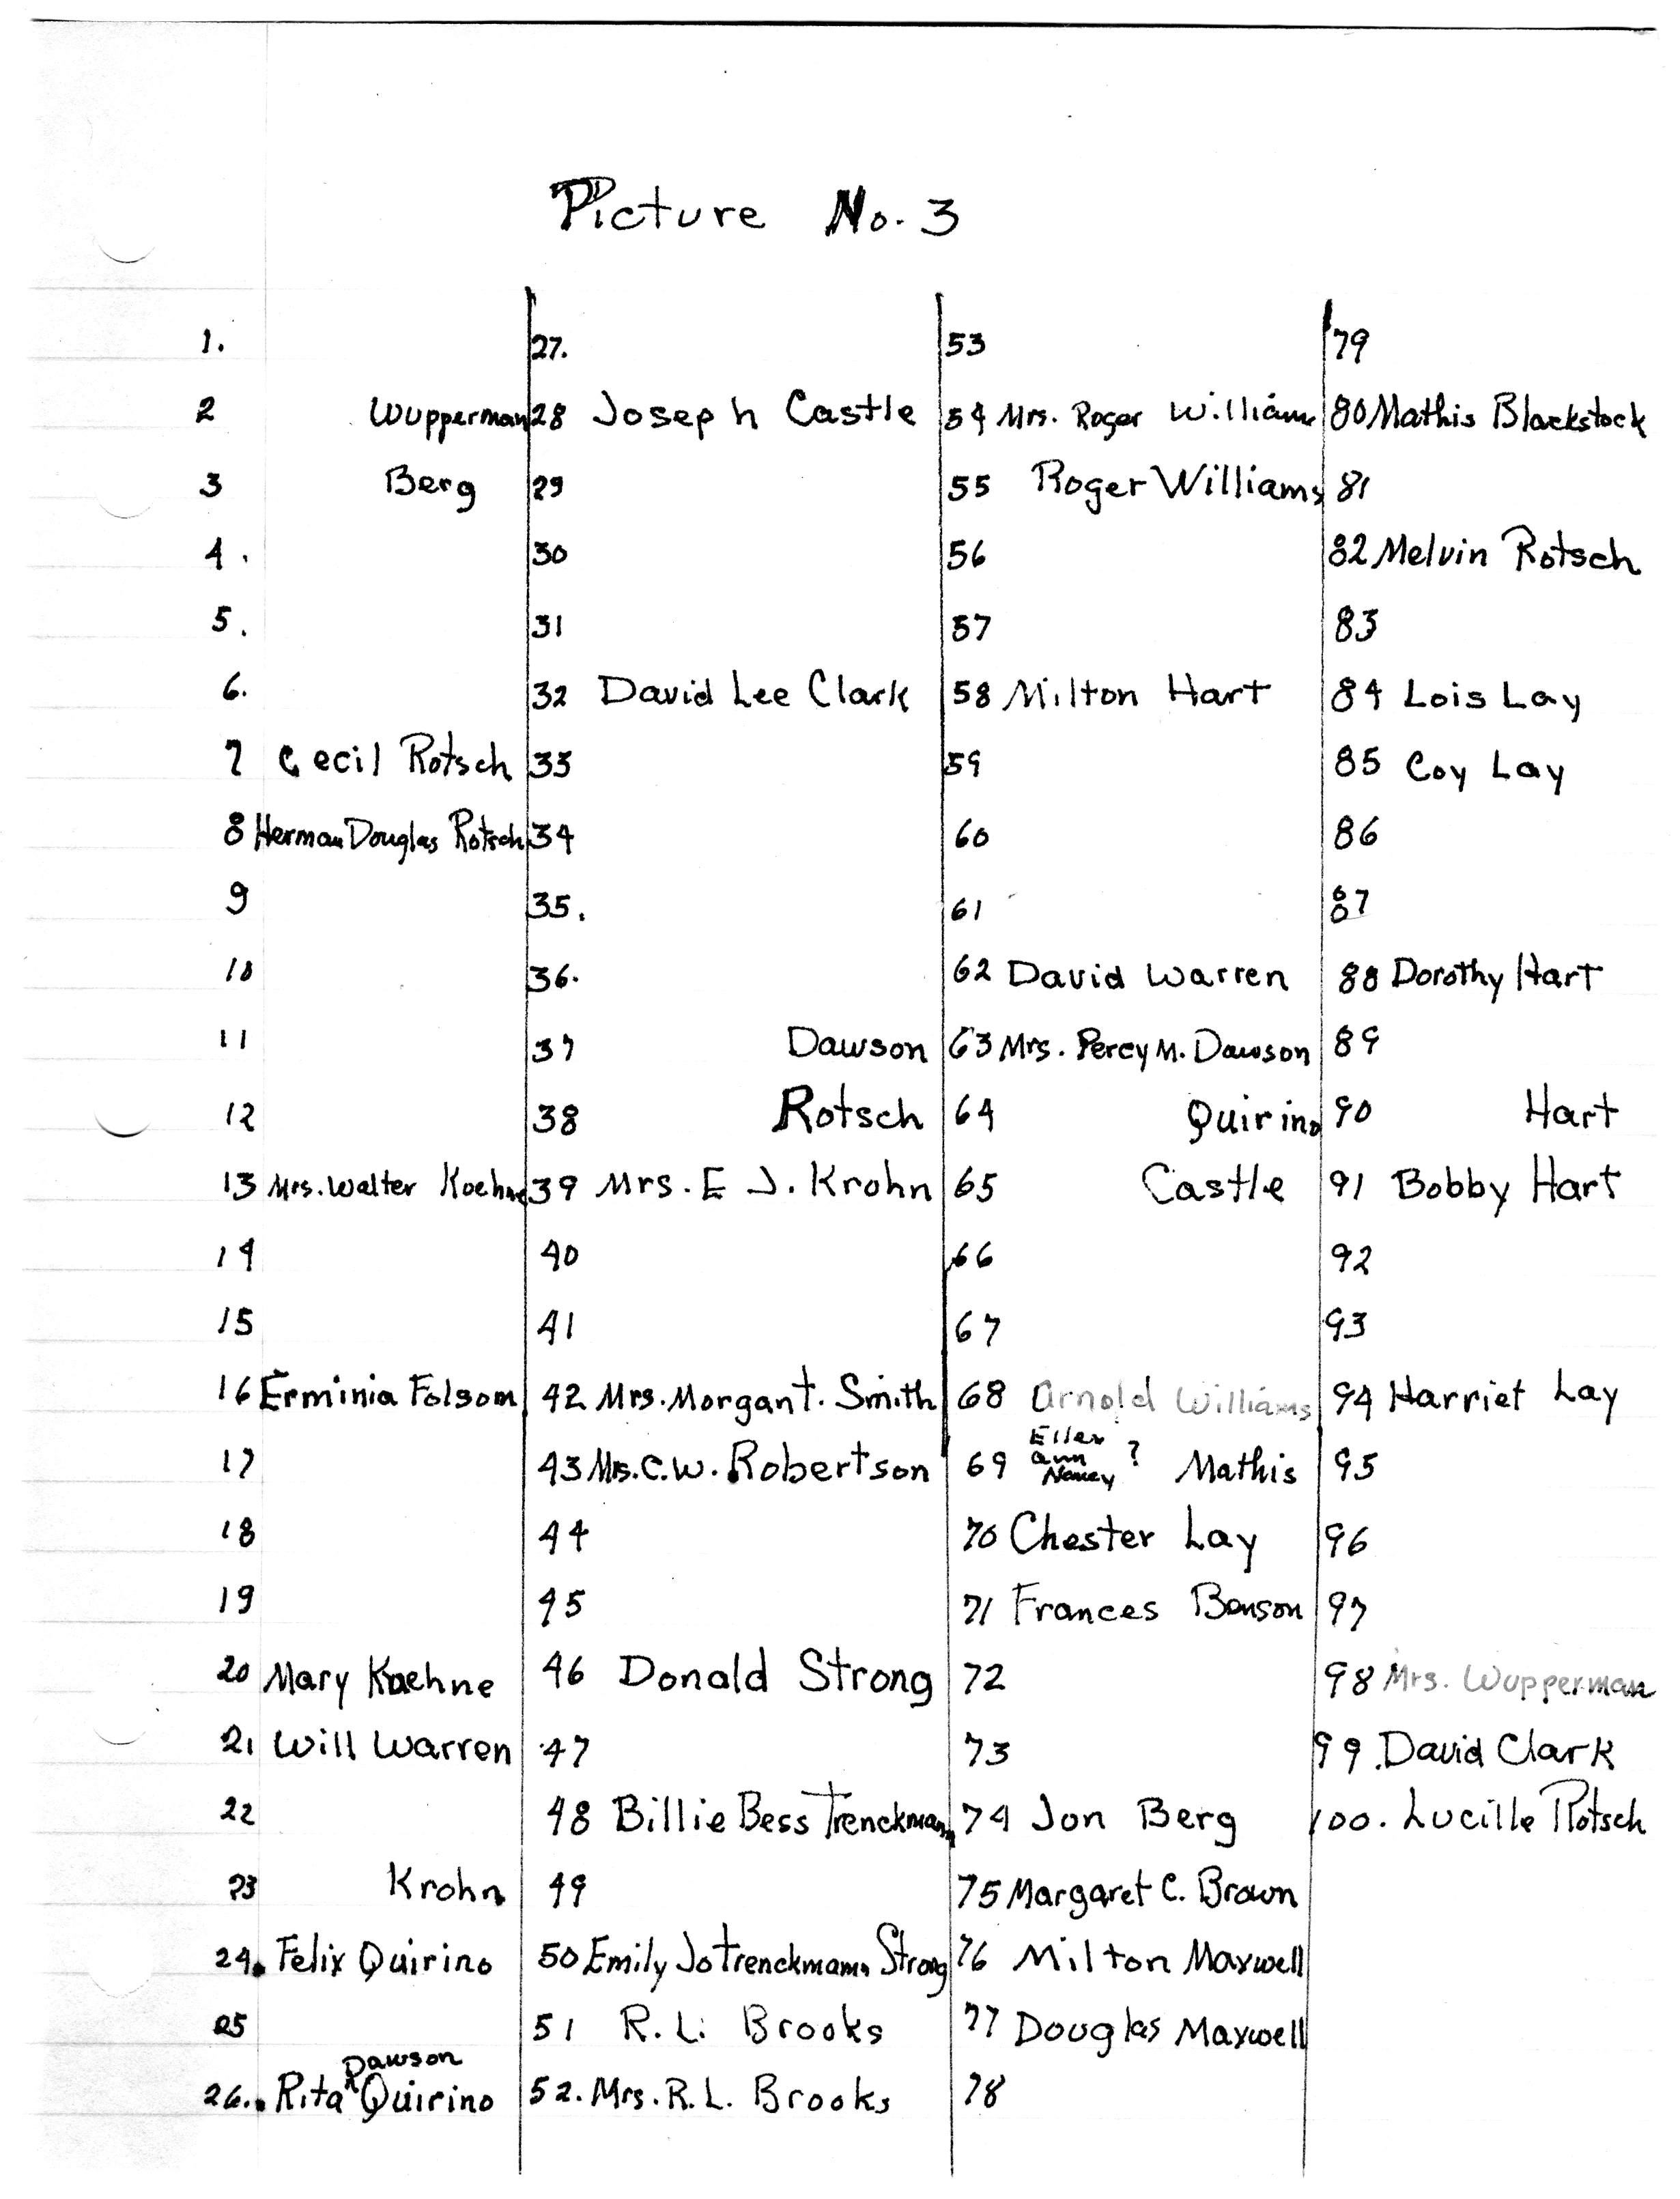 Picture No. 3
1.
2 Wupperman
3 Berg
4.
5.
6.
7 Cecil Rotsch
8 Herman Douglas Rotsch
9
10
11
12
13 Mrs. Walter Koehne
14
15
16 Erminia Folsom
17
18
19
20 Mary Koehne
21 Will Warren
22
23 Krohn
24. Felix Quirino
25
26. Rita Dawson Quirino
27.
28 Joseph Castle
29
30
31
32 David Lee Clark
33
34
35.
36.
37 Dawson
38 Rotsch
39 Mrs. E J. Krohn
40
41
42 Mrs. Morgan T. Smith
43 Mrs. C. W. Robertson
44
45
46 Donald Strong
47
48 Billie Bess Trenckmann
49
50 Emily Jo Trenckmann Strong
51 R. L. Brooks
52. Mrs. R. L. Brooks
53
54 Mrs. Roger Williams
55 Roger Williams
56
57
58 Milton Hart
59
60
61
62 David Warren
63 Mrs. Percy M. Dawson
64 Quirino
65 Castle
66
67
68 Arnold Williams
69 Ellen Ann Nancy ? Mathis
70 Chester Lay
71 Frances Benson
72
73
74 Jon Berg
75 Margaret C. Brown
76 Milton Maxwell
77 Douglas Maxwell
78
79
80 Mathis Blackstock
81
82 Melvin Rotsch
83
84 Lois Lay
85 Coy Lay
86
87
88 Dorothy Hart
89
90 Hart
91 Bobby Hart
92
93
94 Harriet Lay
95
96
97
98 Mrs. Wupperman
99. David Clark
100. Lucille Rotsch